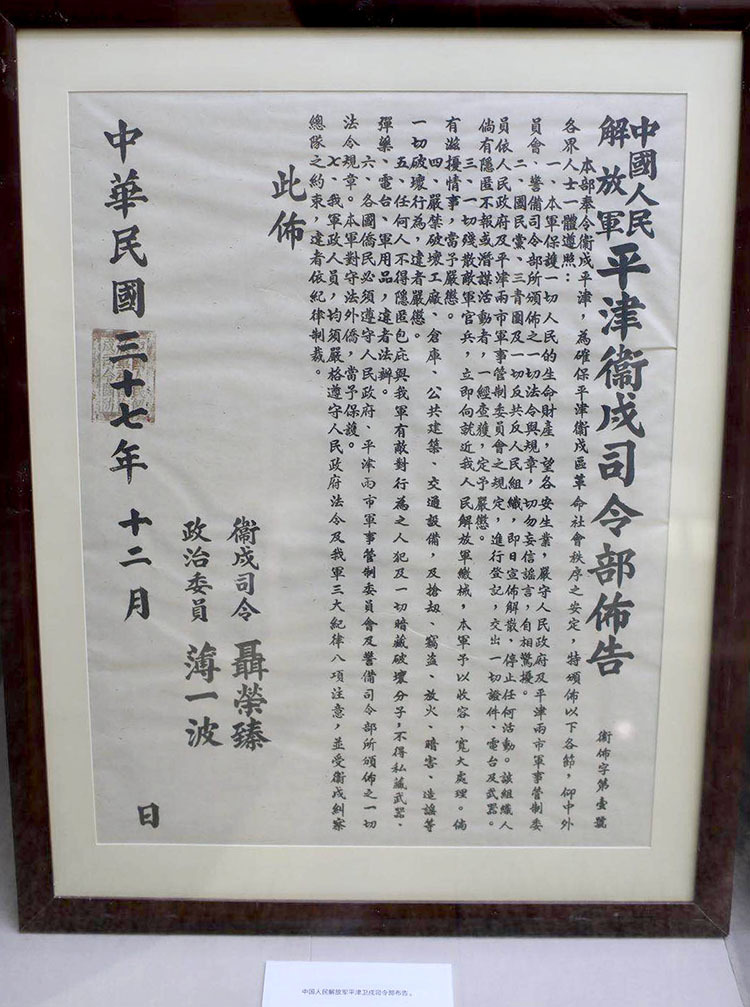 中國人民
解放軍
平津衞戍司令部佈告
衞佈字第壹號
本部奉令衞戍平津，為確保平津衞戍區革命社會秩序之安定，特頒佈以下各節，仰中外
各界人士一體遵照：
一、本軍保護一切人民的生命財產，望各安生業，嚴守人民政府及平津兩市軍事管制委
員會、警備司令部所頒佈之一切法令與規章，切勿妄信謠言，自相驚擾。
二、國民黨、三青團及一切反共反人民組織，即日宣佈解散，停止任何活動。該組織人
員依人民政府及平津兩市軍事管制委員會之規定，進行登記，交出一切證件、電台及武器。
倘有隱匿不報或潛謀活動者，一經查獲，定予嚴懲。
三、一切殘散敵軍官兵，立即向就近我人民解放軍繳械，本軍予以收容，寬大處理。倘
有滋擾情事，當予嚴懲。
四、嚴禁破壞工廠、倉庫、公共建築、交通設備，及搶劫、竊盜、放火、暗害、造謠等
一切破壞行為，違者嚴懲。
五、任何人不得隱匿包庇與我軍有敵對行為之人犯及一切暗藏破壞分子，不得私藏武器、
彈藥、電台、軍用品，違者法辦。
六、各國僑民必須遵守人民政府、平津兩市軍事管制委員會及警備司令部所頒佈之一切
法令規章。本軍對守法外僑，當予保護。
七、我軍政人員，均須嚴格遵守人民政府法令及我軍三大紀律八項注意，並受衞戍糾察
總隊之約束，違者依紀律制裁。
此佈
衞戍司令 聶榮臻
政治委員 薄一波
中華民國三十七年十二月 日
中国人民解放军平津卫戍司令部布告。